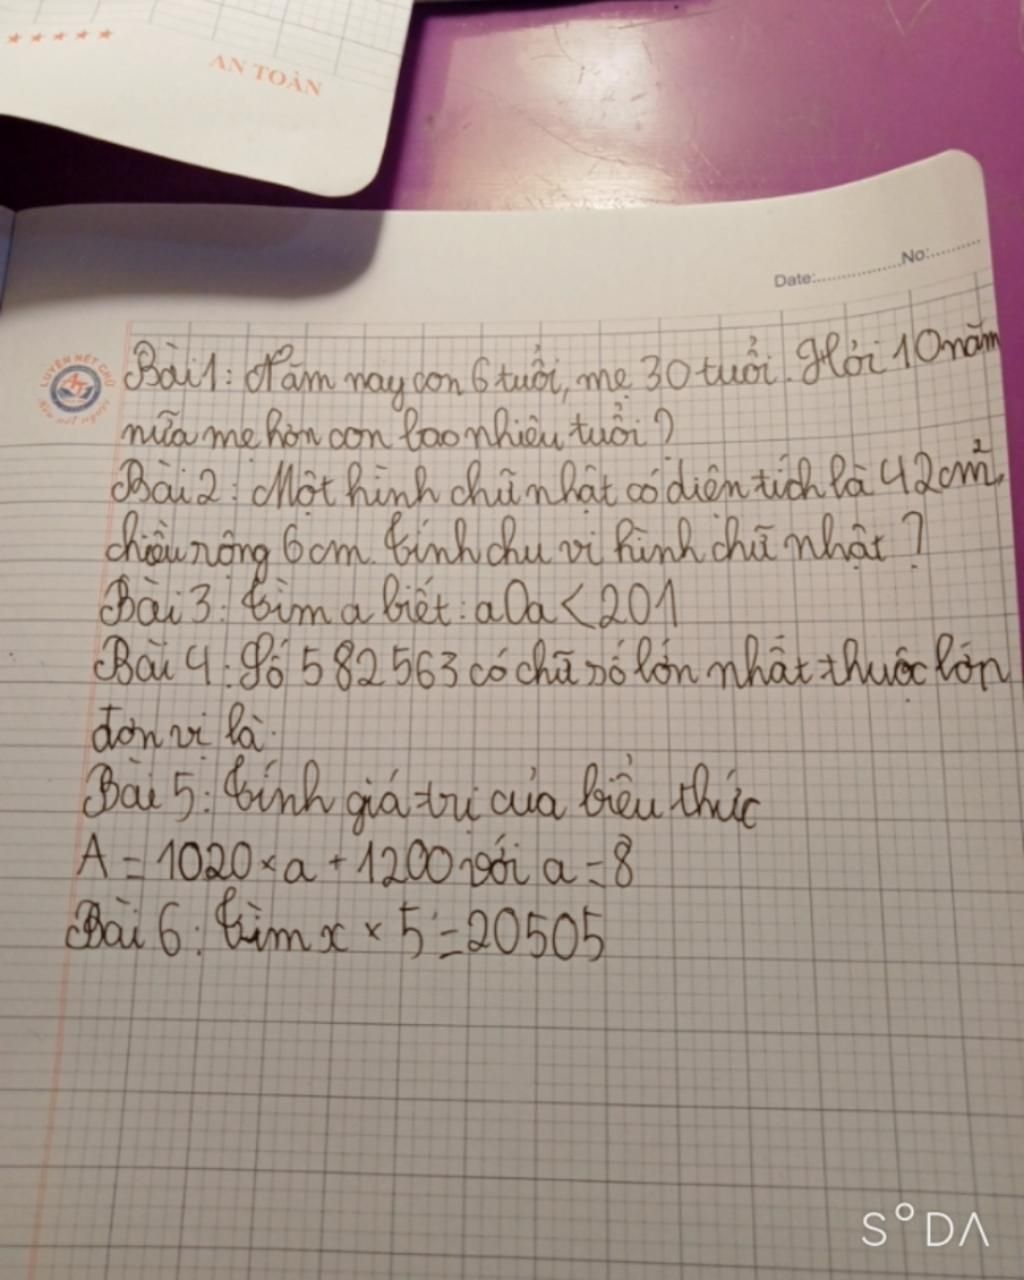 ★★★★★
AN TOÀN
Date:..................No:..........
LUYỆN NÉT CHỮ
Rèn nết người
Bài 1: Năm nay con 6 tuổi, mẹ 30 tuổi. Hỏi 10 năm
nữa mẹ hơn con bao nhiêu tuổi?
Bài 2: Một hình chữ nhật có diện tích là 42cm²,
chiều rộng 6cm. Tính chu vi hình chữ nhật?
Bài 3: Tìm a biết: a0a < 201
Bài 4: Số 582563 có chữ số lớn nhất thuộc lớn
đơn vị là:
Bài 5: Tính giá trị của biểu thức
A = 1020 × a + 1200 với a = 8
Bài 6: Tìm x × 5 = 20505
SODA